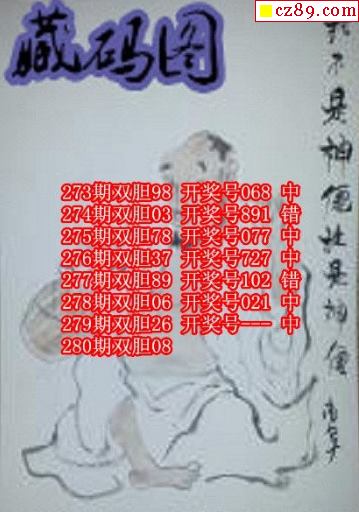 cz89.com
藏码图
273期双胆98 开奖号068 中
274期双胆03 开奖号891 错
275期双胆78 开奖号077 中
276期双胆37 开奖号727 中
277期双胆89 开奖号102 错
278期双胆06 开奖号021 中
279期双胆26 开奖号--- 中
280期双胆08
不是神仙
是神仙